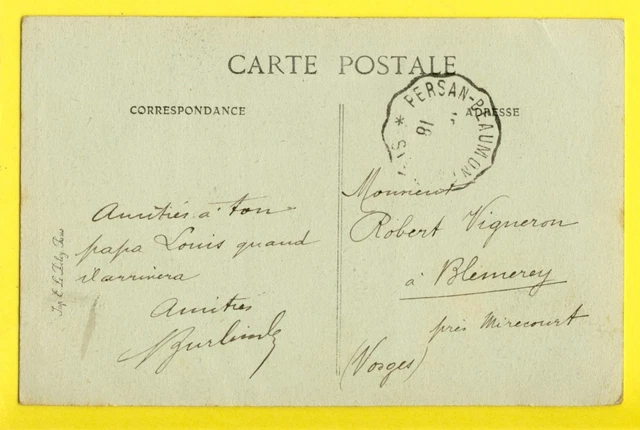 CARTE POSTALE
CORRESPONDANCE
ADRESSE
* PERSAN-BEAUMONT
18
Amitiés à ton
papa Louis quand
il arrivera
Amitiés
Monsieur
Robert Vigneron
à Blemerey
près Mirecourt
(Vosges)
Imp. E. Le Deley Paris